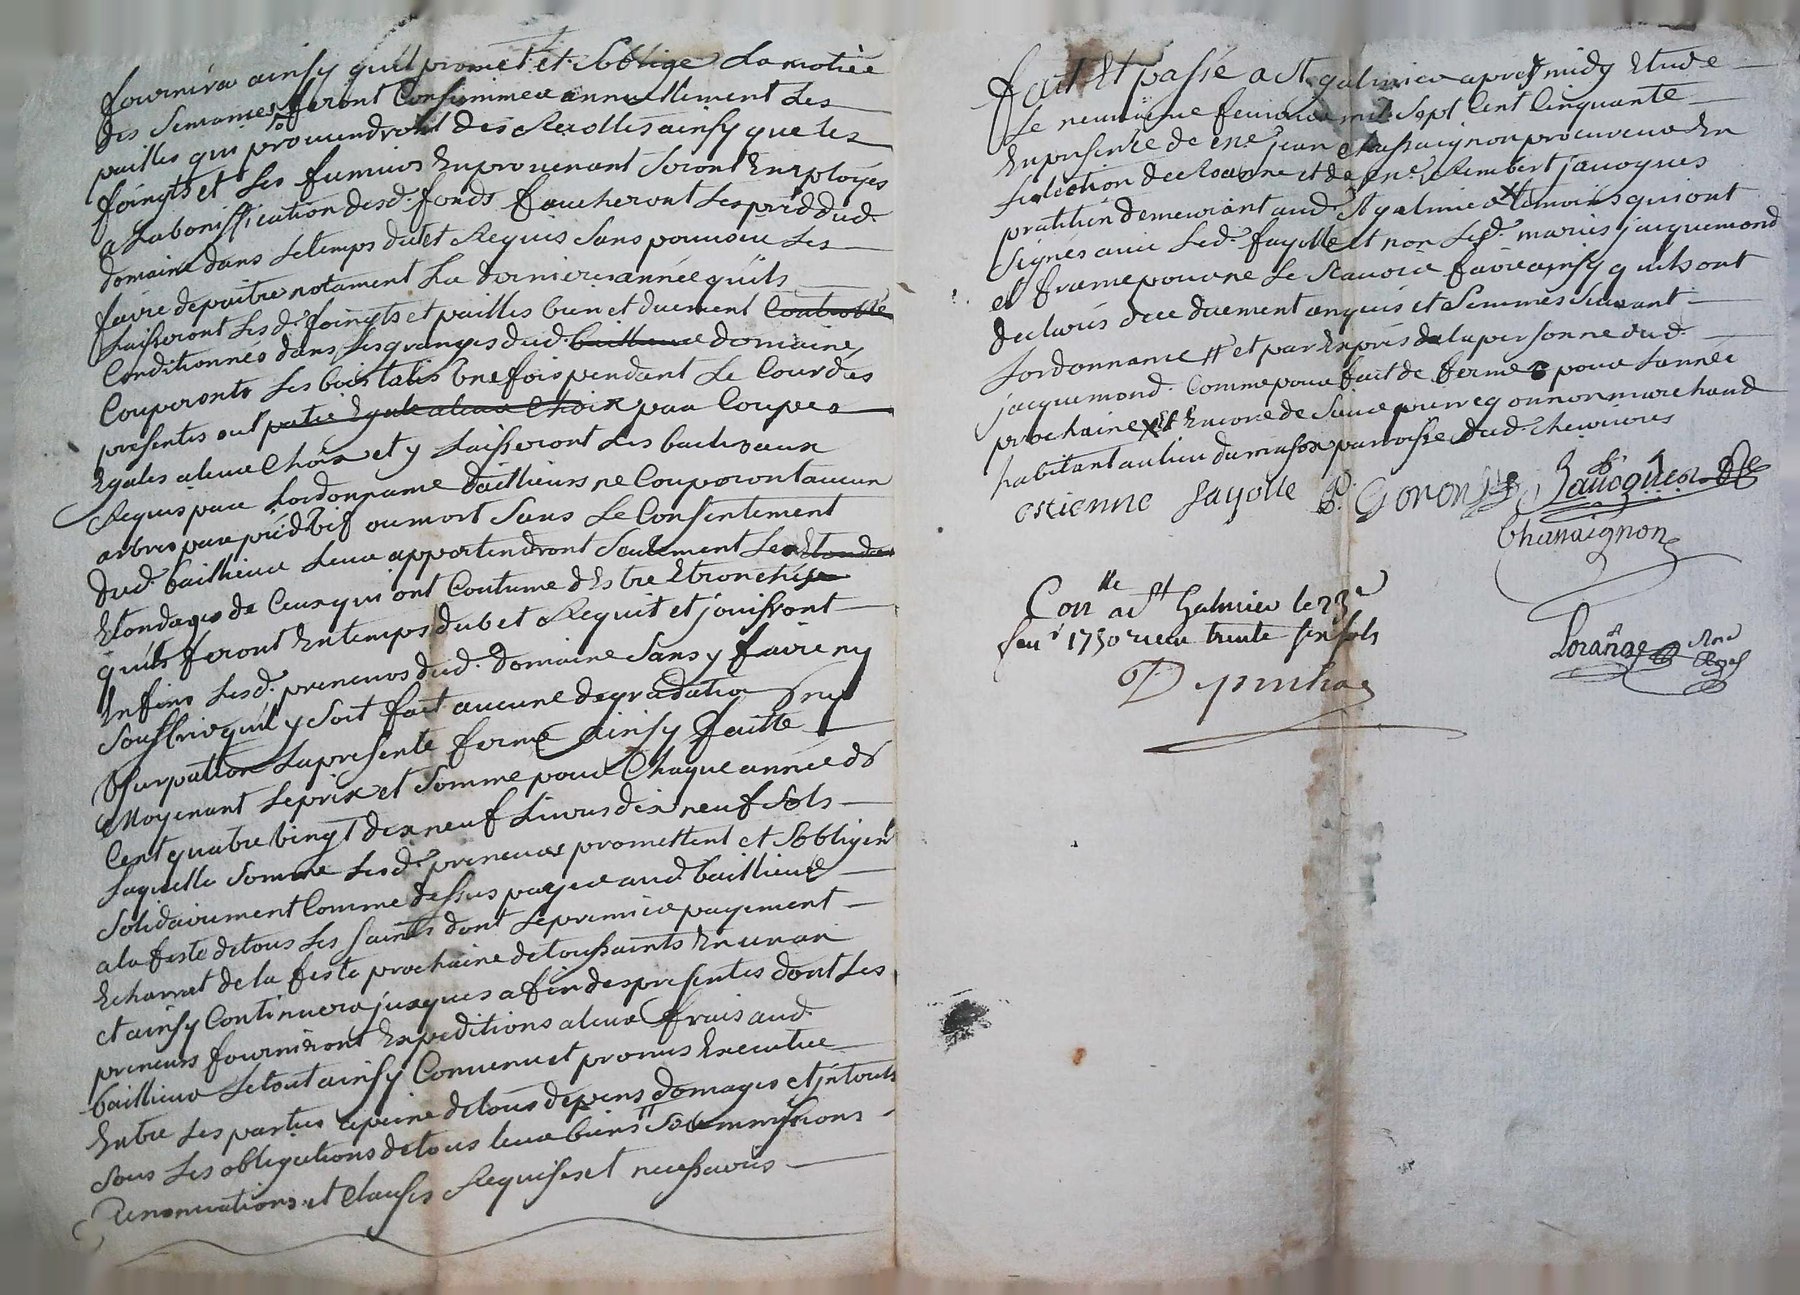 fournira ainsy qu'il promet et s'oblige La motiée
des Semances feront Consimmer annuellement Les
pailles qui proviendront des Recoltes ainsy que les
foingts et Les fumiers En provenant Seront Employés
a La boniffication desd. fonds faucheront Les prés dud.
domaine dans Le temps dub et Requis Sans pouvoir Les
faire depaitre notament La derniere année qu'ils
Laisseront Lesd. foingts et pailles bien et duement
Conditionnés dans Les granges dud. domaine,
Couperonts Les bois talis Une fois pendant Le Cour des
presentes par Coupes
Egales a leur Choix et y Laisseront Les baliveaux
Requis par Lordonname d'aillieurs ne Couperont aucun
arbres par pied vif ou mort Sans Le Consentement
dud. baillieur Leur appartiendront Seulement Les
Etondages de Ceux qui ont Coutume d'Estre Etronchés
qu'ils feront En temps dub et Requit et jouissront
Enfins Lesd. preneurs dud. domaine Sans y faire ny
Souffrir qu'il y Soit fait aucune degradation ny
Usurpation La presente ferme ainsy faitte
Moyenant Le prix et Somme pour Chaque année de
Cent quatre vingt dix neuf Livres dix neuf Sols
Laquelle Somme Lesd. preneurs promettent et S'obligent
Solidairement Comme dessus payer aud. baillieur
a la feste de tous Les Saints dont Le premier payement
Echarrat de la feste prochaine de toussaints En un an
et ainsy Continuera jusques a fin des presentes dont Les
preneurs fourniront Expeditions a leur frais aud.
baillieur Le tout ainsy Convenu et promis Executer
Entre Les parties a peine de tous depens domages et jnterets
Sous Les obligations de tous leur biens Soummissions
Renonciations et Clauses Requises et necessaires
fait Et passé a St galmier apres midy Etude
Le neuvieme fevrier mil Sept Cent Cinquante
En presence de me jean Chassaignon procureur En
Lelection de Roanne et de me Rembert jacoques
pratitien demeurant aud. St galmier temoins qui ont
Signés avec Led. fayolle et non Lesd. mariés jacquemond
et frame pour ne Le Scavoir faire ainsy quils ont
declarés de ce duement enquis et Semmés Suivant
Lordonname et par Exprés de la personne dud.
jacquemond. Comme pour fait de ferme pour Lannée
prochaine Et Encore de Sieur pierre gonnon marchand
habitant au lieu du massox parroisse dud. chevrieres
estienne fayolle P. Gonon Jacoques
Chassaignon
Conlle a St Galmier le 23e
fevr 1750 recu trente six sols